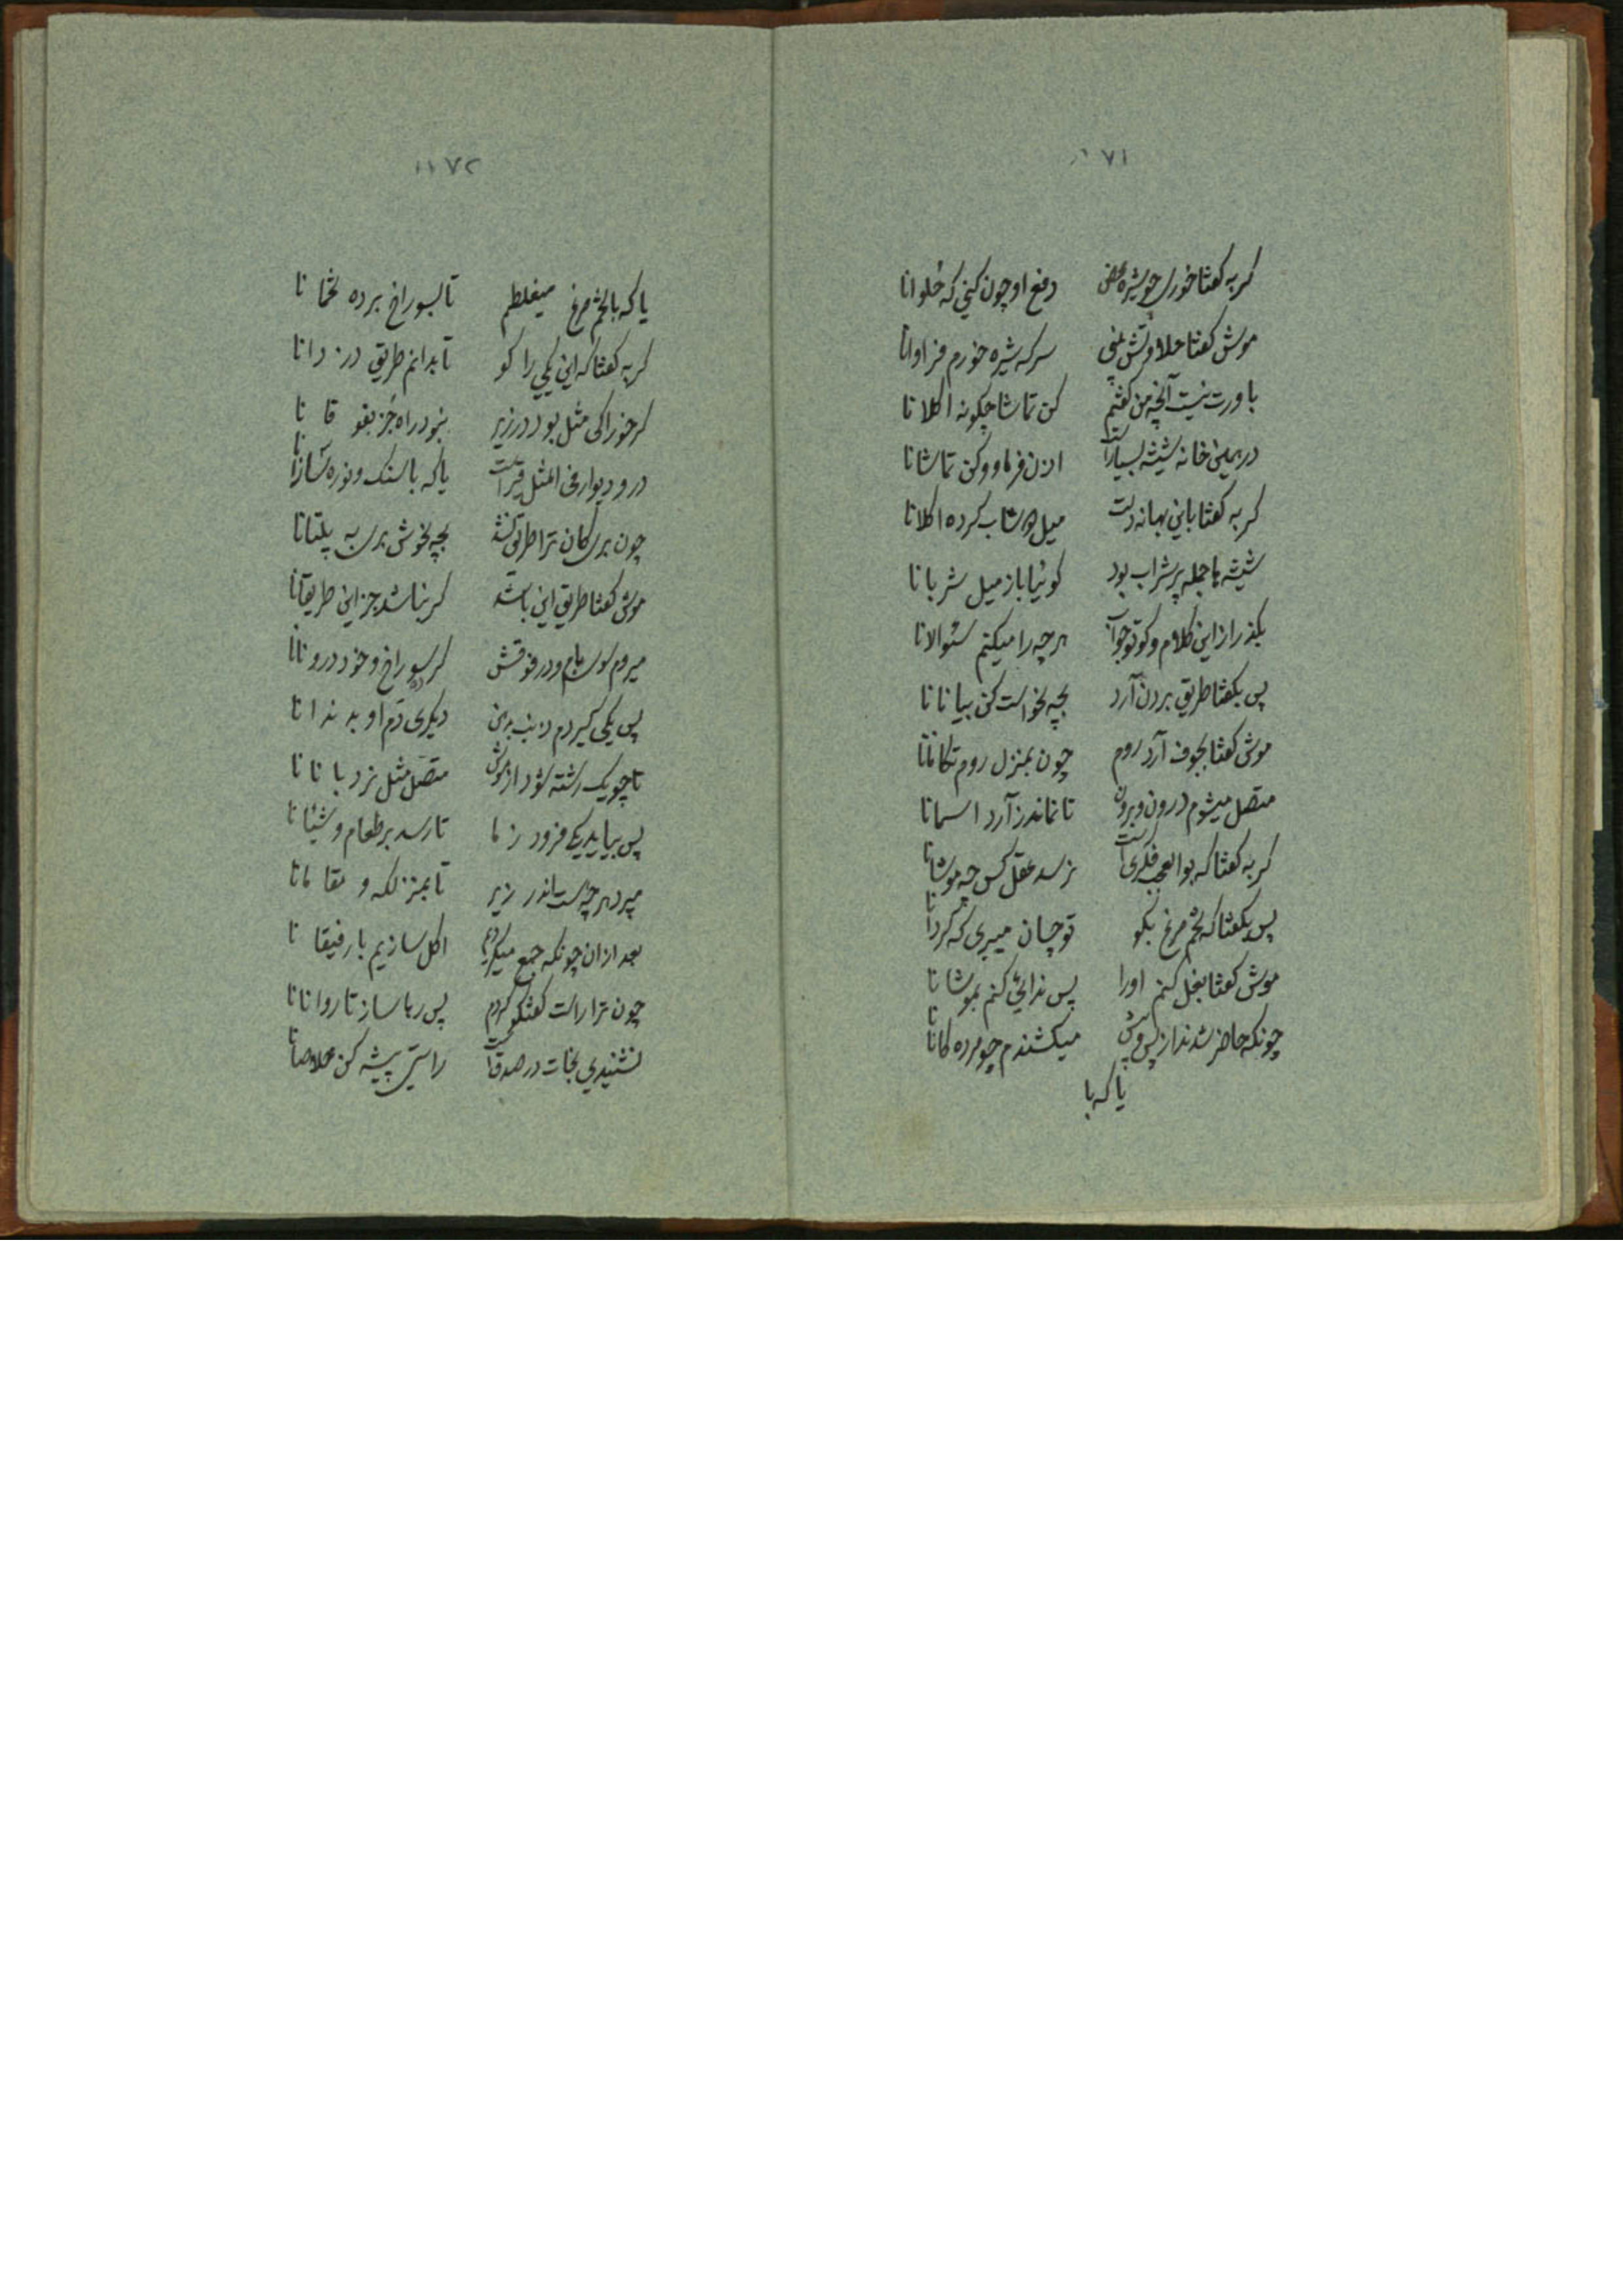 ۱۷۱
کربه کفتا خوری چو شیره محض دفع او چون کنی که حلوانا
موش کفتا حلاوتش بمنی سرکه شیره خورم فراوانا
باورت نیست آنچه من کفتم کن تماشا چکونه اکلانا
در همین خانه شیشه بسیار است اذن فرما و کن تماشانا
کربه کفتا باین بهانه دلت میل شراب کرده اکلانا
شیشه ها جمله پر شراب بود کوئیا باز میل شربانا
بکذر از این کلام و کو تو جواب هر چه را میکنم سئوالانا
پس بکفتا طریق بردن آرد بچه نحو است کن بیانانا
موش کفتا بجوف آرد روم چون بمنزل روم تکانانا
متصل میشوم درون و برون تا نماند ز آرد اسمانا
کربه کفتا که بوالعجب فکری است نرسد عقل کس چه موشانا
پس بکفتا که تخم مرغ بکو تو چسان میبری که کردانا
موش کفتا بغل کنم اورا پس ندائی کنم بموشانا
چونکه حاضر شدند از پس و پیش میکشندم چو مرده کانانا
یا که با
۱۷۲
یا که با تخم مرغ میغلطم تا بسوراخ برده تخمانا
کربه کفتا که این یکی را کو تا بدانم طریق دزدانا
کر خوراکی مثل بود در زیر نبود راه جز بفوقانا
در و دیوار فی المثل قیر است یا که باسنک و نوره سازانا
چون بری کان ترا طریق کنند بچه نحوش بری به پلتانا
موش کفتا طریق این باشد کر نباشد جز این طریقانا
میروم سوی بام و در فوقش کر سوراخ و خود درونانا
پس یکی کیردم ذنب بدهن دیکری دم او به ندانا
تا چو یک رشته شود از موش متصل مثل نردبانانا
پس بیاید یکی فرود ز ما تا رسد بر طعام و شیئانا
میبرد هر چه هست اندر زیر تا بمنزلکه و مقامانا
بعد از ان چونکه جمع میکردیم اکل سازیم با رفیقانا
چون ترا راست کفتکو کردم پس رها ساز تا روانانا
نشنیدی نجات در صدق است راستی پیشه کن خلاصانا